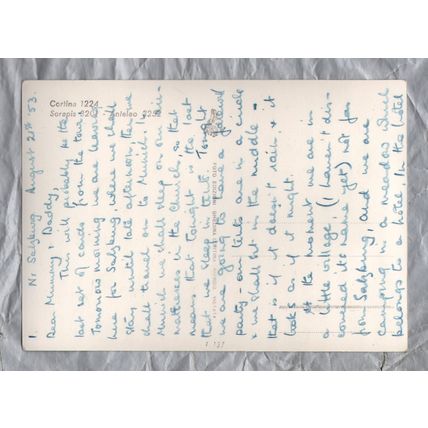 Cortina 1224
Sorapis 3207 Antelao 3252
1. Nr Salzburg August 21st '53.
Dear Mummy & Daddy,
This will probably be the
last set of cards from the tour.
Tomorrow morning we are leaving
here for Salzburg, where we shall
stay until late afternoon, then we
shall travel on to Munich. In
Munich we shall sleep on our air-
matresses in the Church, so that
means that tonight is the last
that we sleep in tents. Tonight
we are going to have a farewell
party - our tents are in a circle
& we shall sit in the middle -
that is if it doesn't rain & it
looks as if it might.
At the moment we are in
a little village, (I haven't dis-
covered its name yet) not far
from Salzburg, and we are
camping in a meadow which
belongs to a hotel. In the hotel